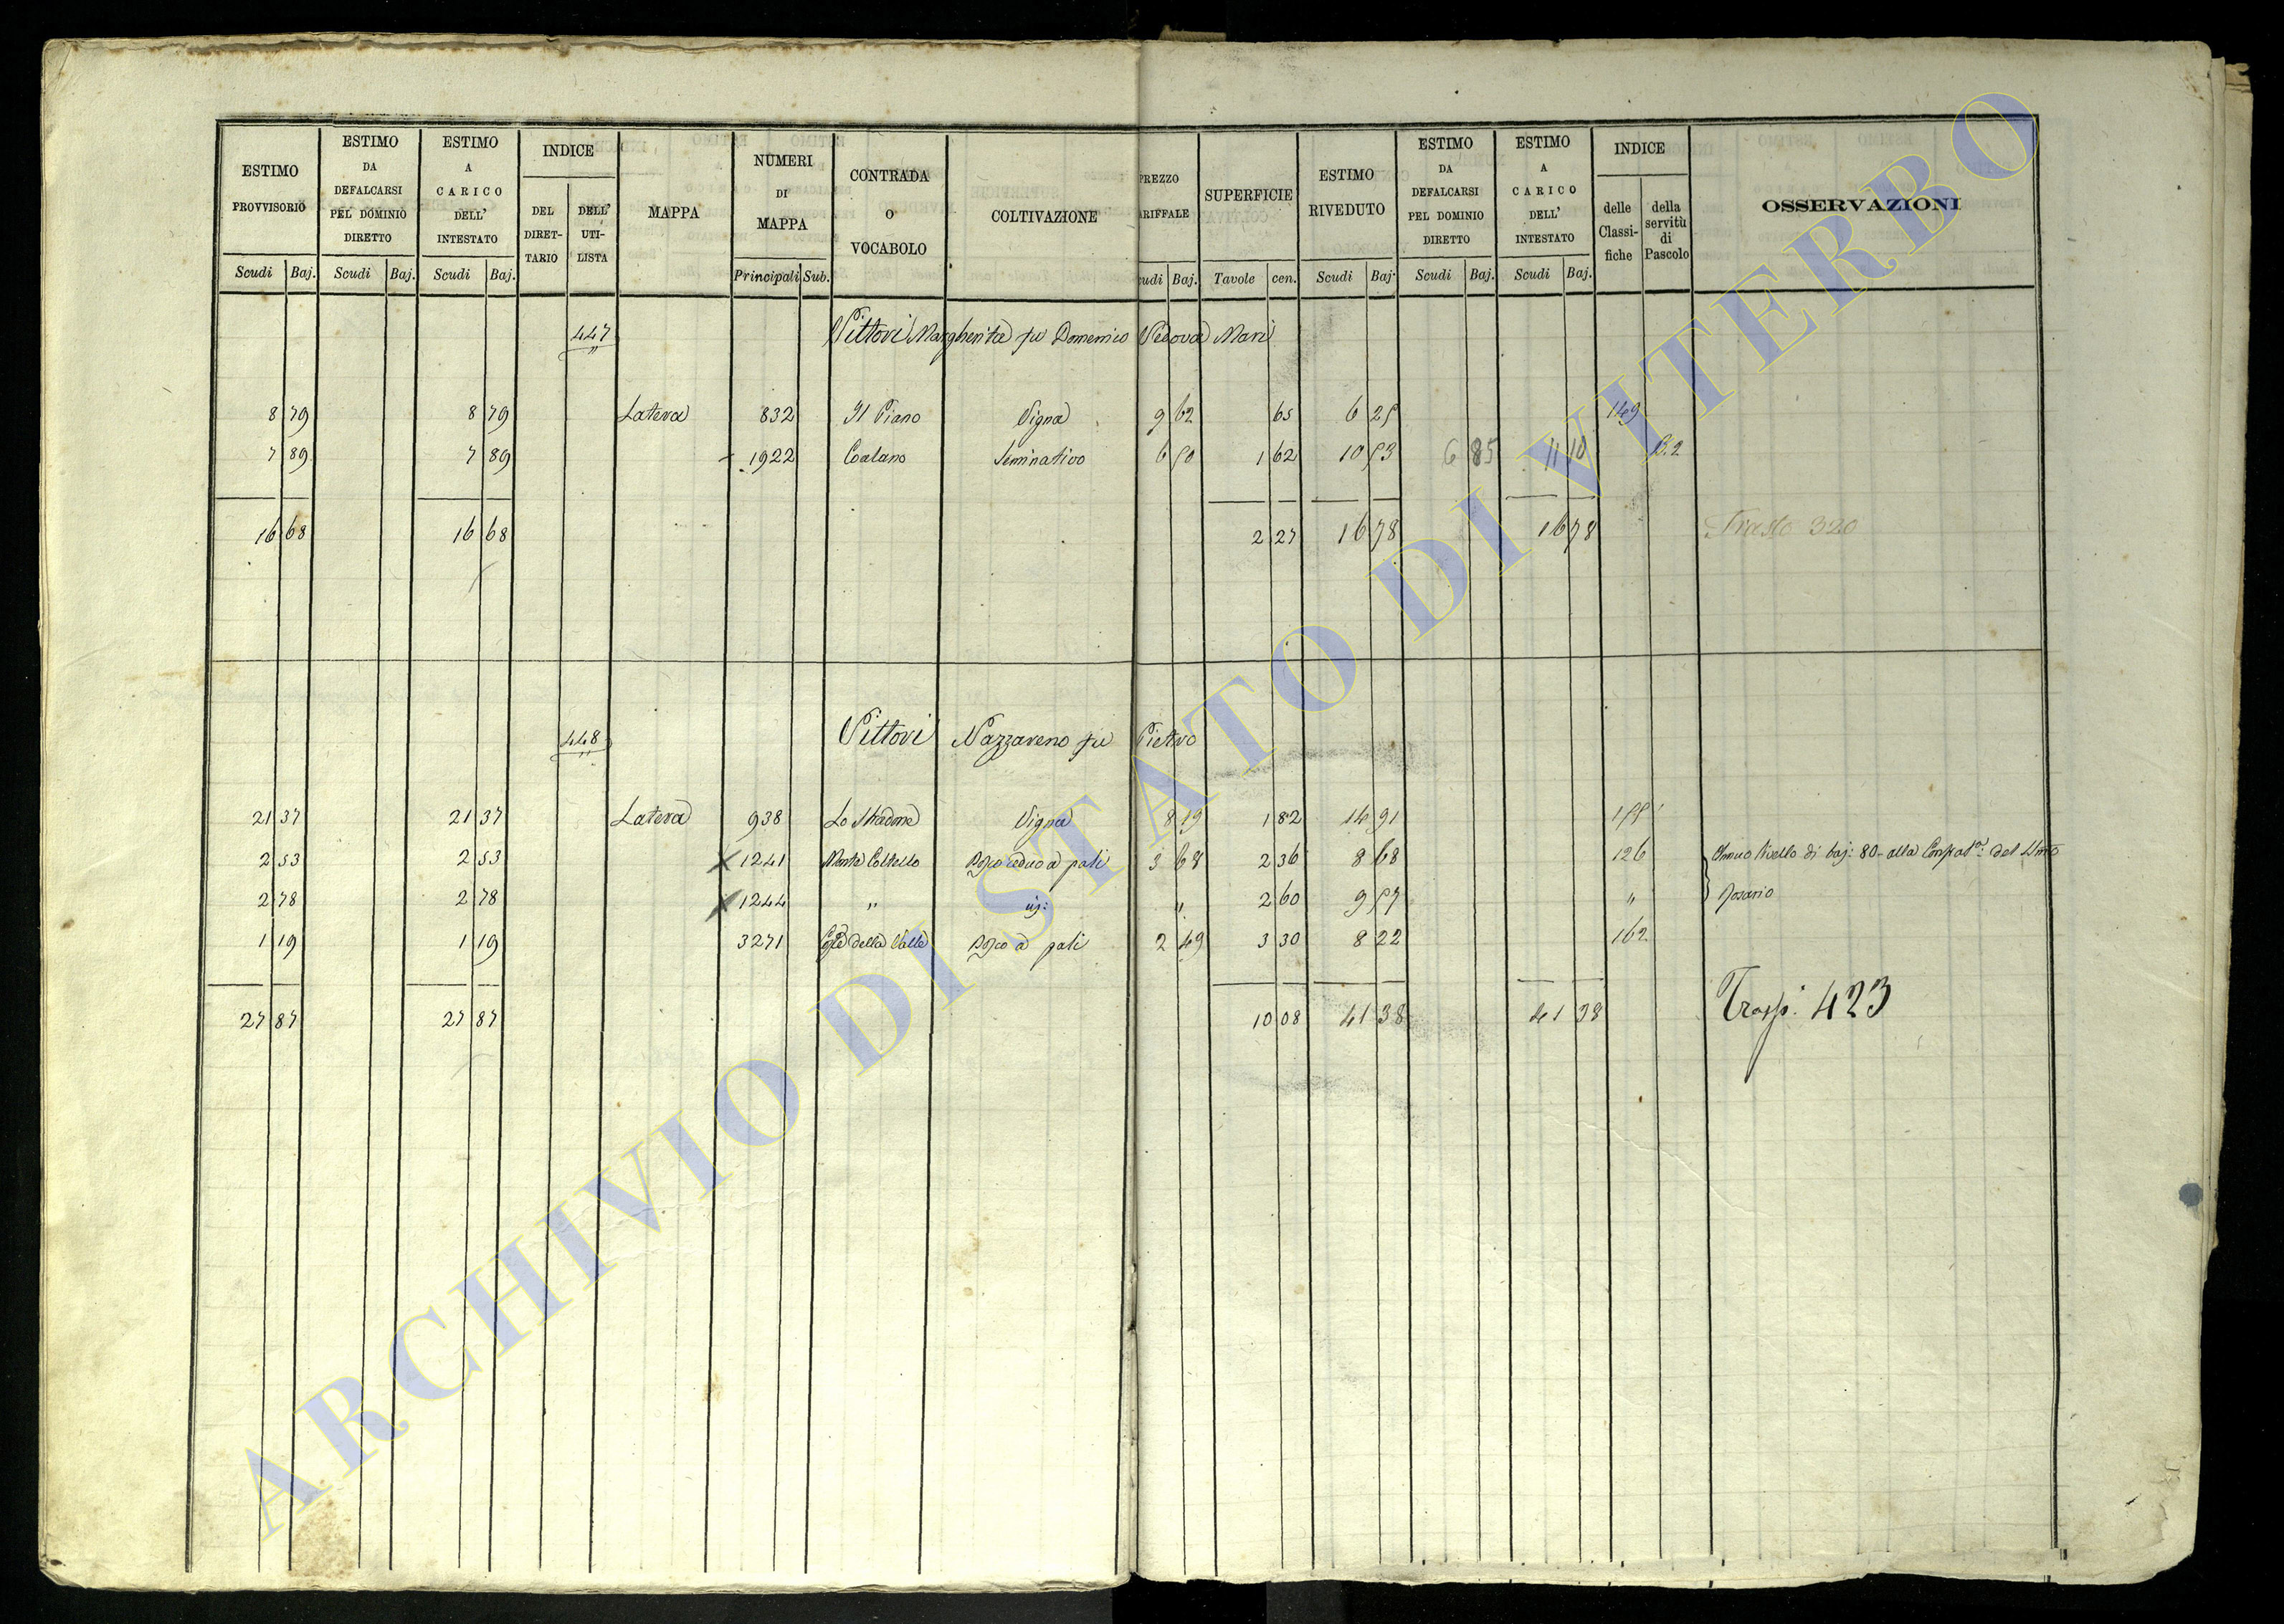 ESTIMO PROVVISORIO
ESTIMO DA DEFALCARSI PEL DOMINIO DIRETTO
ESTIMO A CARICO DELL' INTESTATO
INDICE
DEL DIRET-TARIO
DELL' UTI-LISTA
MAPPA
NUMERI DI MAPPA
CONTRADA O VOCABOLO
COLTIVAZIONE
PREZZO
ARIFFALE
SUPERFICIE
ESTIMO RIVEDUTO
ESTIMO DA DEFALCARSI PEL DOMINIO DIRETTO
ESTIMO A CARICO DELL' INTESTATO
INDICE
delle Classi-fiche
della servitù di Pascolo
OSSERVAZIONI
Scudi Baj. Scudi Baj. Scudi Baj. Principali Sub. udi Baj. Tavole cen. Scudi Baj. Scudi Baj. Scudi Baj.
447 Vittori Margherita fu Domenico Vedova Mari
8 79 8 79 Latera 832 Il Piano Vigna 9 62 65 6 25 149
7 89 7 89 1922 Seminativo 6 50 1 62 10 53 6 85 11 10 B.2
16 68 16 68 2 27 16 78 16 78 320
448 Vittori Nazzareno fu Pietro
21 37 21 37 Latera 938 Lo Stradone Vigna 8 19 1 82 14 91 155
2 53 2 53 X 1241 Monte Coltello Bosco ceduo a pali 3 68 2 36 8 68 126 Annuo livello di baj: 80 - alla Confrat.a: del Smo
2 78 2 78 X 1244 " " 2 60 9 57 " Rosario
1 19 1 19 3271 della Valle Bosco a pali 2 49 3 30 8 22 162
27 87 27 87 10 08 41 38 41 38 Trasp. 423
ARCHIVIO DI STATO DI VITERBO